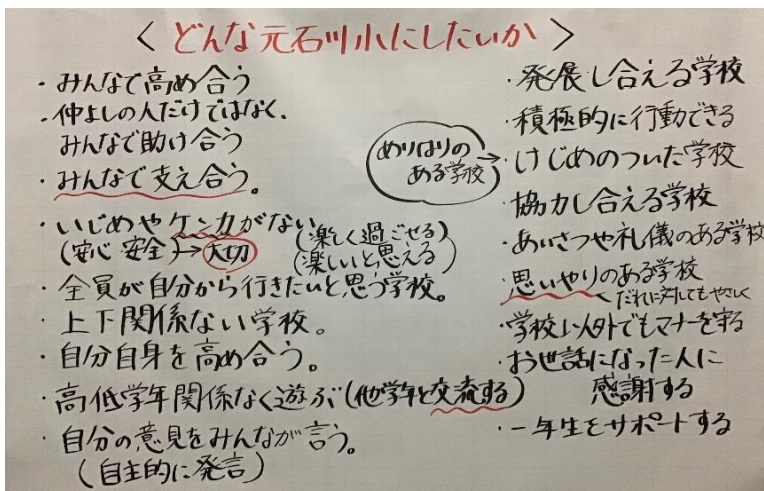 <どんな元石川小にしたいか>
・みんなで高め合う
・仲よしの人だけではなく、
みんなで助け合う
・みんなで支え合う。
・いじめやケンカがない
(安心 安全)→大切
(楽しく過ごせる)
(楽しいと思える)
・全員が自分から行きたいと思う学校。
・上下関係ない学校。
・自分自身を高め合う。
・高低学年関係なく遊ぶ(他学年と交流する)
・自分の意見をみんなが言う。
(自主的に発言)
・発展し合える学校
・積極的に行動できる
めりはりの
ある学校→
・けじめのついた学校
・協力し合える学校
・あいさつや礼儀のある学校
・思いやりのある学校
だれに対してもやさしく
・学校以外でもマナーを守る
・お世話になった人に
感謝する
・一年生をサポートする